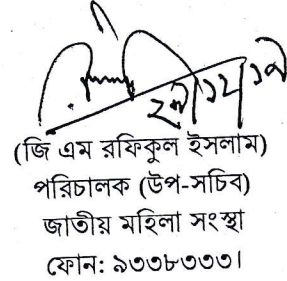 (জি এম রফিকুল ইসলাম)
পরিচালক (উপ-সচিব)
জাতীয় মহিলা সংস্থা
ফোন: ৯৩৩৮৩৩৩।